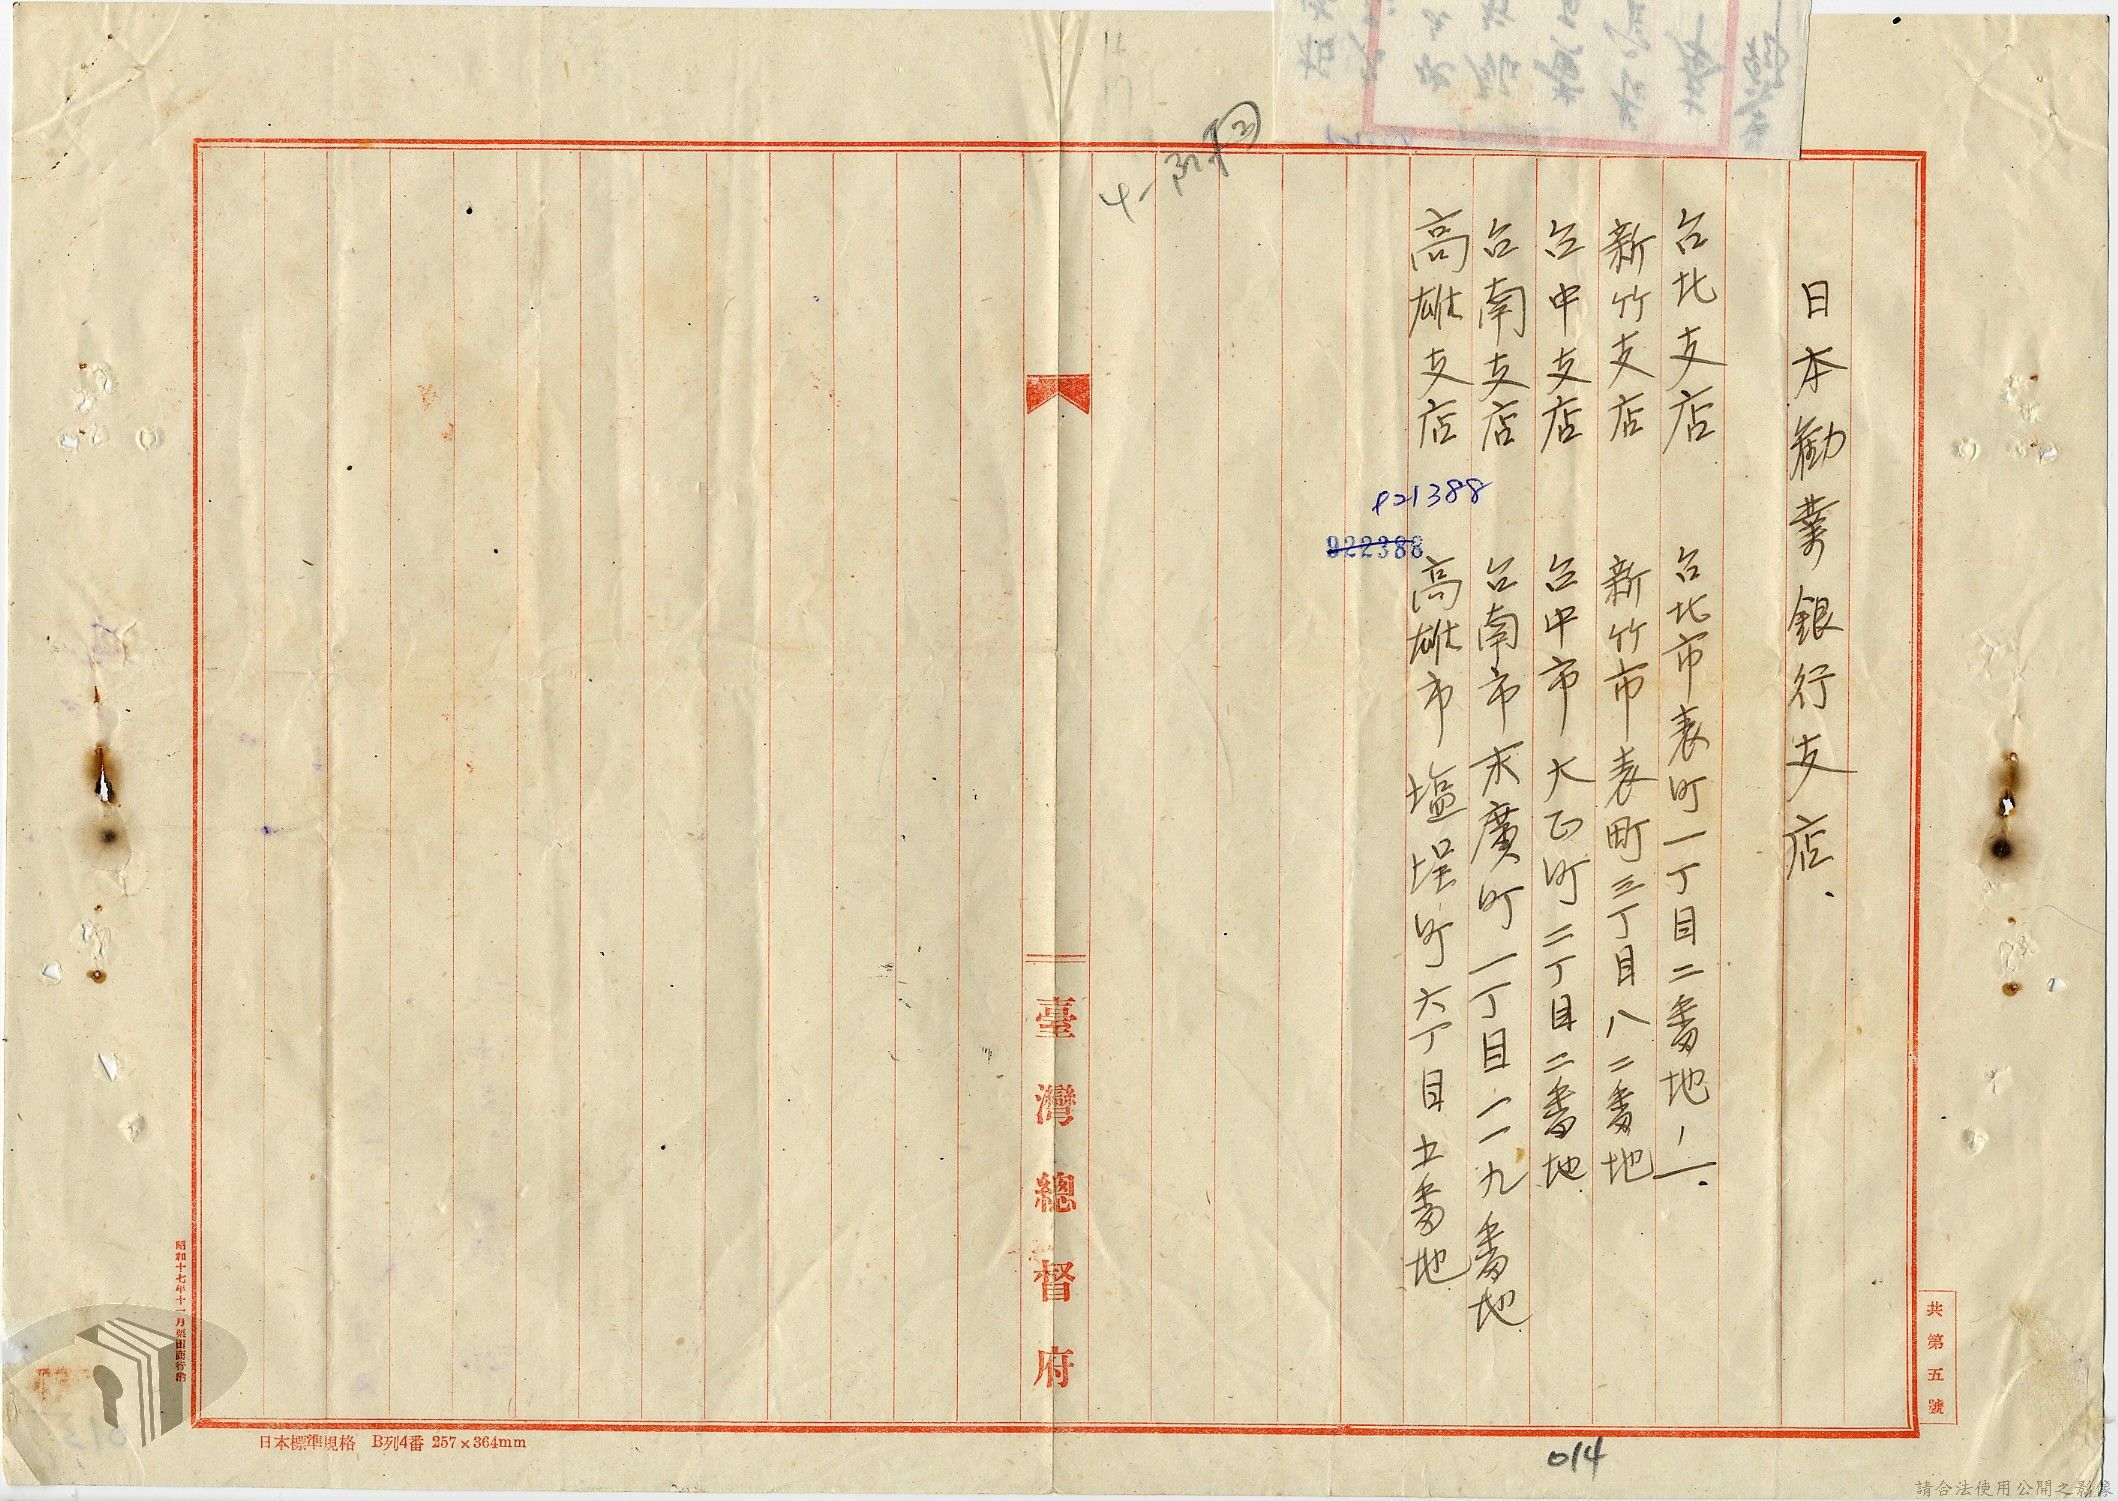 日本勧業銀行支店、
台北支店　台北市表町一丁目二番地ノ一
新竹支店　新竹市表町三丁目八二番地
台中支店　台中市大正町二丁目二番地
台南支店　台南市末廣町一丁目一一九番地
高雄支店　高雄市塩埕町六丁目五番地
921388
922388
臺灣總督府
共第五號
日本標準規格　B列4番 257×364mm
昭和十七年十一月
014
請合法使用公開之影像